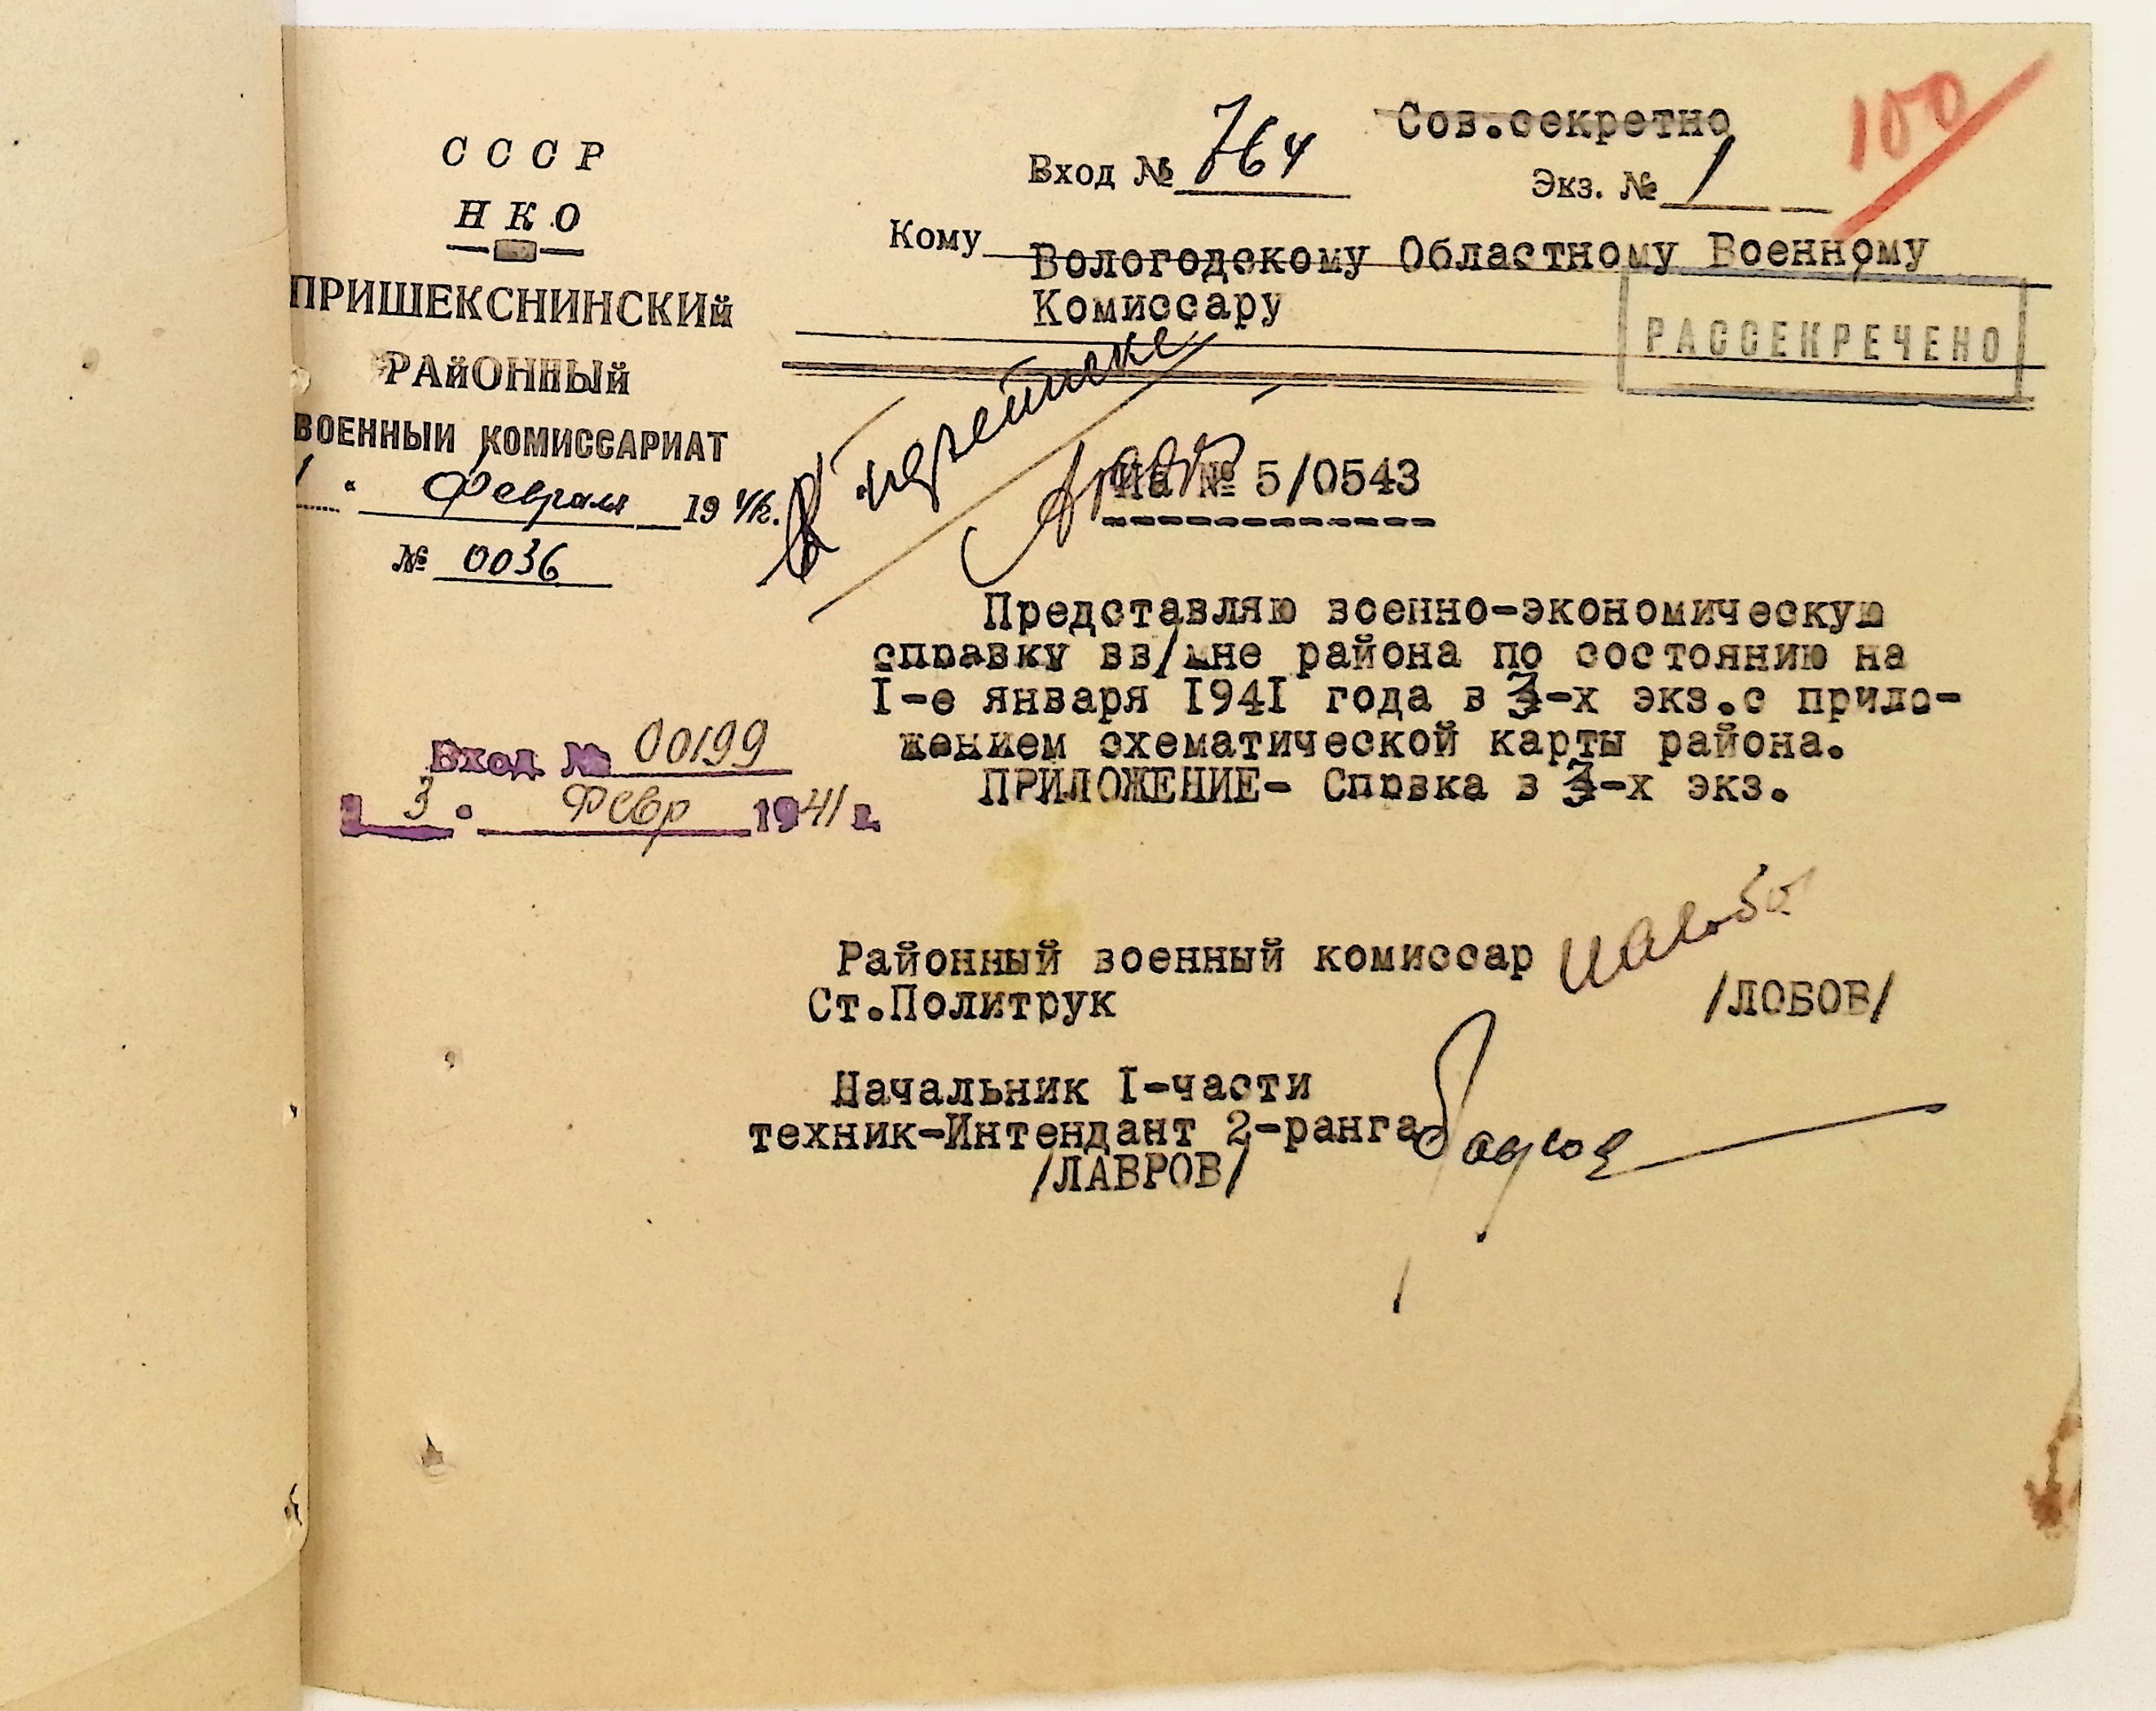 СССР
НКО
ПРИШЕКСНИНСКИЙ
РАЙОННЫЙ
ВОЕННЫЙ КОМИССАРИАТ
1 " Февраля 1941г.
№ 0036
Вход № 00199
3 " Февр 1941 г.
Сов.секретно
100
Вход № 764
Экз. № 1
Кому Вологодскому Областному Военному
Комиссару
РАССЕКРЕЧЕНО
К переписке
На № 5/0543
Представляю военно-экономическую
справку вв/мне района по состоянию на
I-е января 1941 года в 3-х экз.с прило-
жением схематической карты района.
ПРИЛОЖЕНИЕ- Спрвка в 3-х экз.
Районный военный комиссар
Ст.Политрук
/ЛОБОВ/
Начальник I-части
техник-Интендант 2-ранга
/ЛАВРОВ/